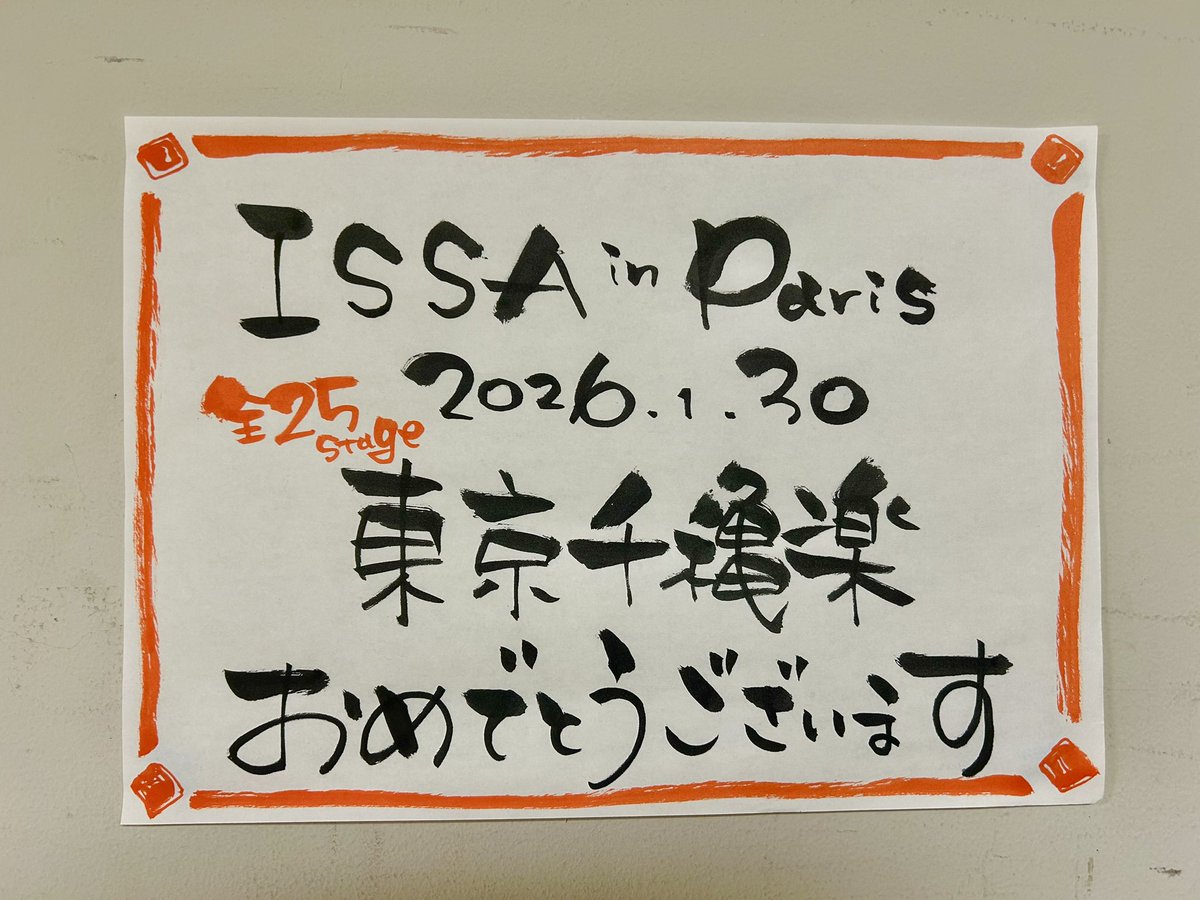 ISSA in Paris
2026.1.30
全25stage
東京千穐楽
おめでとうございます